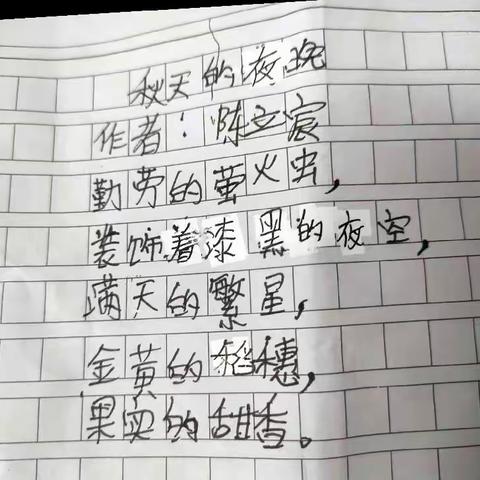 秋天的夜晚
作者：陈立宸
勤劳的萤火虫，
装饰着漆黑的夜空，
满天的繁星，
金黄的稻穗，
果实的甜香。